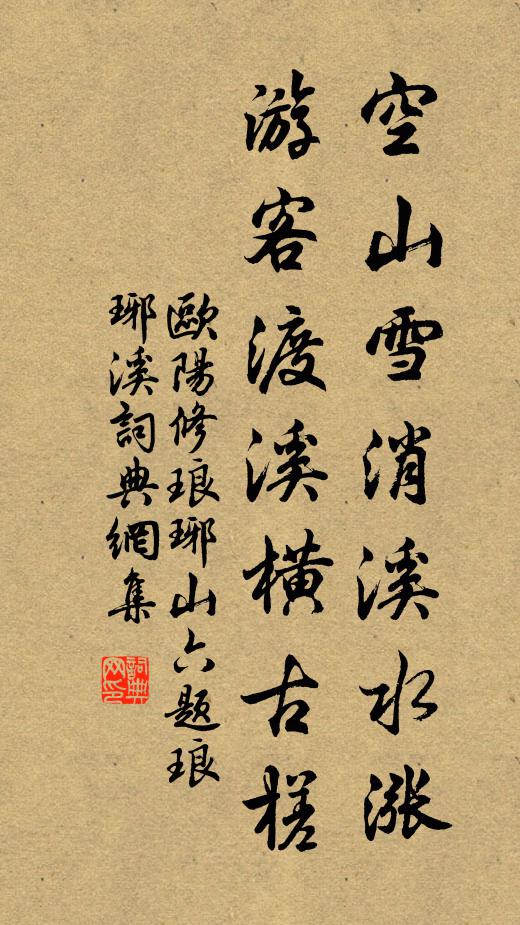 空山雪消溪水漲
游客渡溪橫古槎
歐陽修琅琊山六題琅
琊溪詞典網集
詞典网印